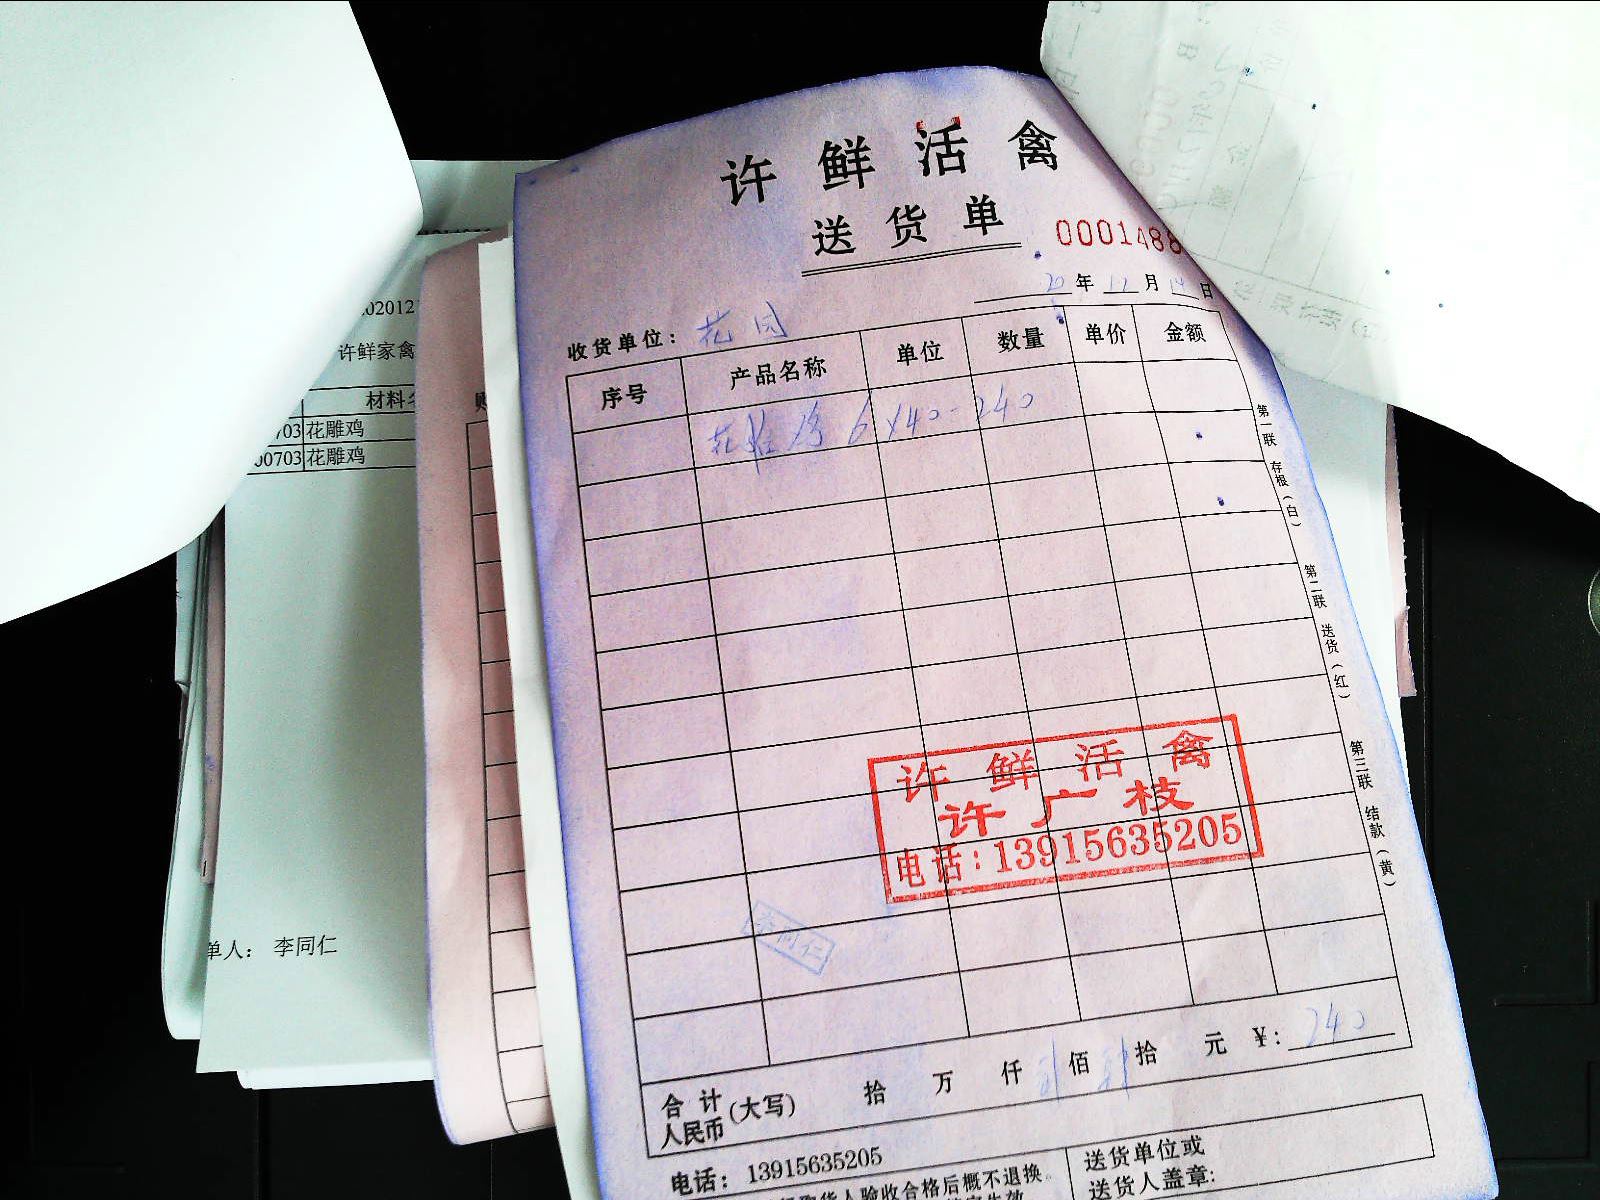 许鲜活禽
送货单
000148
20 年 12 月 14 日
收货单位： 花园
序号 产品名称 单位 数量 单价 金额
6×40=240
第一联 存根（白）
第二联 送货（红）
第三联 结款（黄）
许鲜活禽
许广枝
电话：13915635205
李同仁
合计人民币 (大写) 拾 万 仟 佰 拾 元 ¥: 240
电话： 13915635205
验收合格后概不退换
送货单位或
送货人盖章:
020121
许鲜家禽
材料
703 花雕鸡
00703 花雕鸡
单人： 李同仁